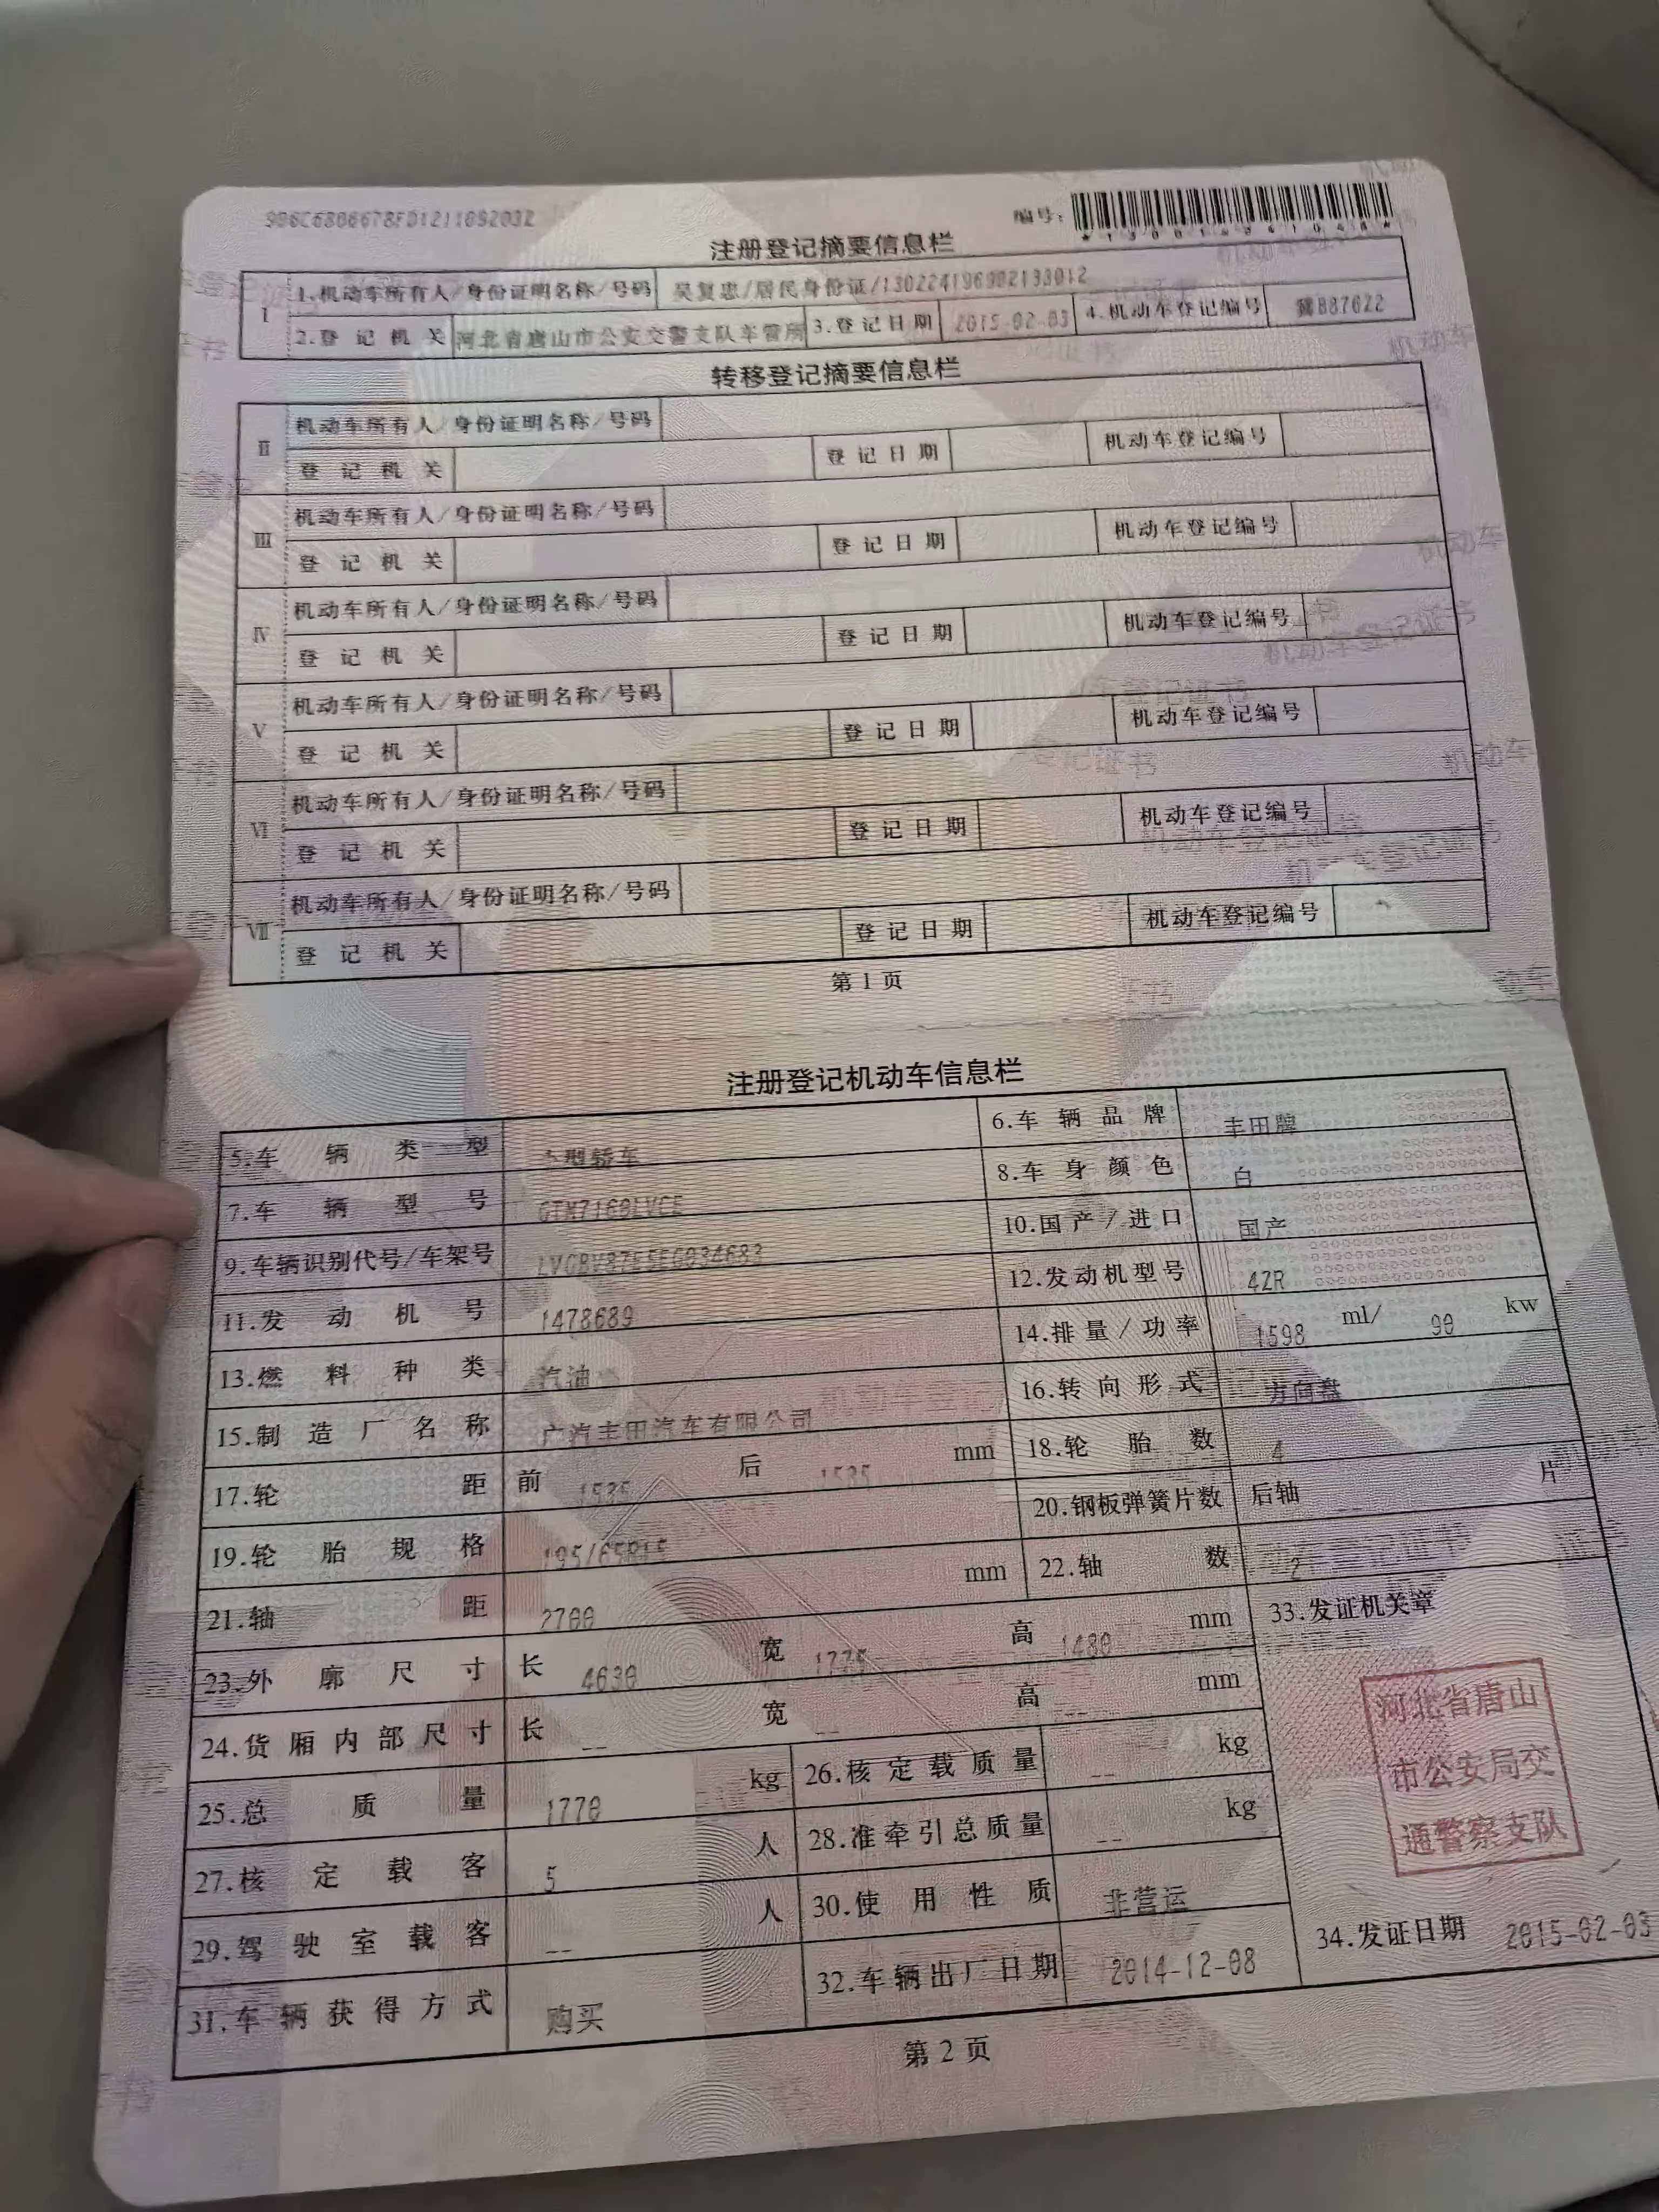 906C6806678FD1211092032
编号：
*130014241048*
注册登记摘要信息栏
Ⅰ 1.机动车所有人/身份证明名称/号码 吴复忠/居民身份证/130224196902133012
2.登记机关 河北省唐山市公安交警支队车管所 3.登记日期 2015-02-03 4.机动车登记编号 冀B87622
转移登记摘要信息栏
Ⅱ 机动车所有人/身份证明名称/号码
登记机关 登记日期 机动车登记编号
Ⅲ 机动车所有人/身份证明名称/号码
登记机关 登记日期 机动车登记编号
Ⅳ 机动车所有人/身份证明名称/号码
登记机关 登记日期 机动车登记编号
Ⅴ 机动车所有人/身份证明名称/号码
登记机关 登记日期 机动车登记编号
Ⅵ 机动车所有人/身份证明名称/号码
登记机关 登记日期 机动车登记编号
Ⅶ 机动车所有人/身份证明名称/号码
登记机关 登记日期 机动车登记编号
第1页
注册登记机动车信息栏
5.车辆类型 小型轿车 6.车辆品牌 丰田牌
7.车辆型号 GTM7160LVCE 8.车身颜色 白
9.车辆识别代号/车架号 10.国产/进口 国产
11.发动机号 1478689 12.发动机型号 4ZR
13.燃料种类 汽油 14.排量/功率 1598 ml/ 90 kw
15.制造厂名称 广汽丰田汽车有限公司 16.转向形式 方向盘
17.轮距 前 1535 后 1535 mm 18.轮胎数 4
19.轮胎规格 195/65R15 20.钢板弹簧片数 后轴 -- 片
21.轴距 2700 mm 22.轴数 2
23.外廓尺寸 长 4630 宽 1775 高 1480 mm 33.发证机关章
24.货厢内部尺寸 长 -- 宽 -- 高 -- mm
25.总质量 1770 kg 26.核定载质量 -- kg
27.核定载客 5 人 28.准牵引总质量 -- kg
29.驾驶室载客 -- 人 30.使用性质 非营运
31.车辆获得方式 购买 32.车辆出厂日期 2014-12-08
河北省唐山
市公安局交
通警察支队
34.发证日期 2015-02-03
第2页